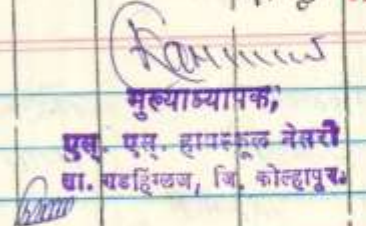 मुख्याध्यापक,
एस्. एस्. हायस्कूल नेसरी
ता. गडहिंग्लज, जि. कोल्हापूर.